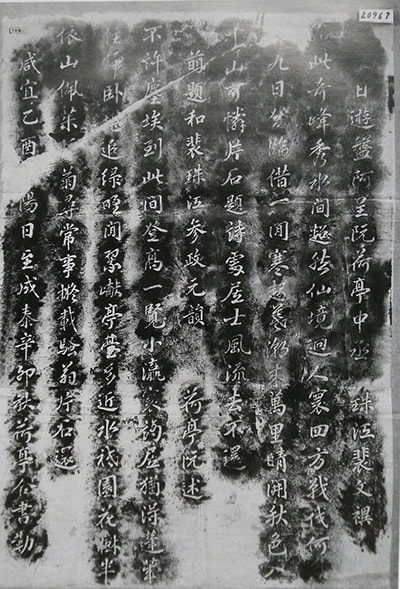 20967
日遊盤阿呈阮荷亭中丞 珠江裴文禩
此奇峰秀水間超然仙境迥人寰四方戰伐何
九日登臨借一閒寒起潮來萬里晴開秋色入
山可憐片石題詩處居士風流去不還
前題和裴珠江參政元韻 荷亭阮述
不許塵埃到此間登高一覽小瀛寰釣獨得蓮華
臥追綠野閒翠巘亭臺多近水祗園花樹半
依山佩茱菊尋常事載騷翁片石還
咸宜乙酉陽日至成泰辛卯秋荷亭書勒